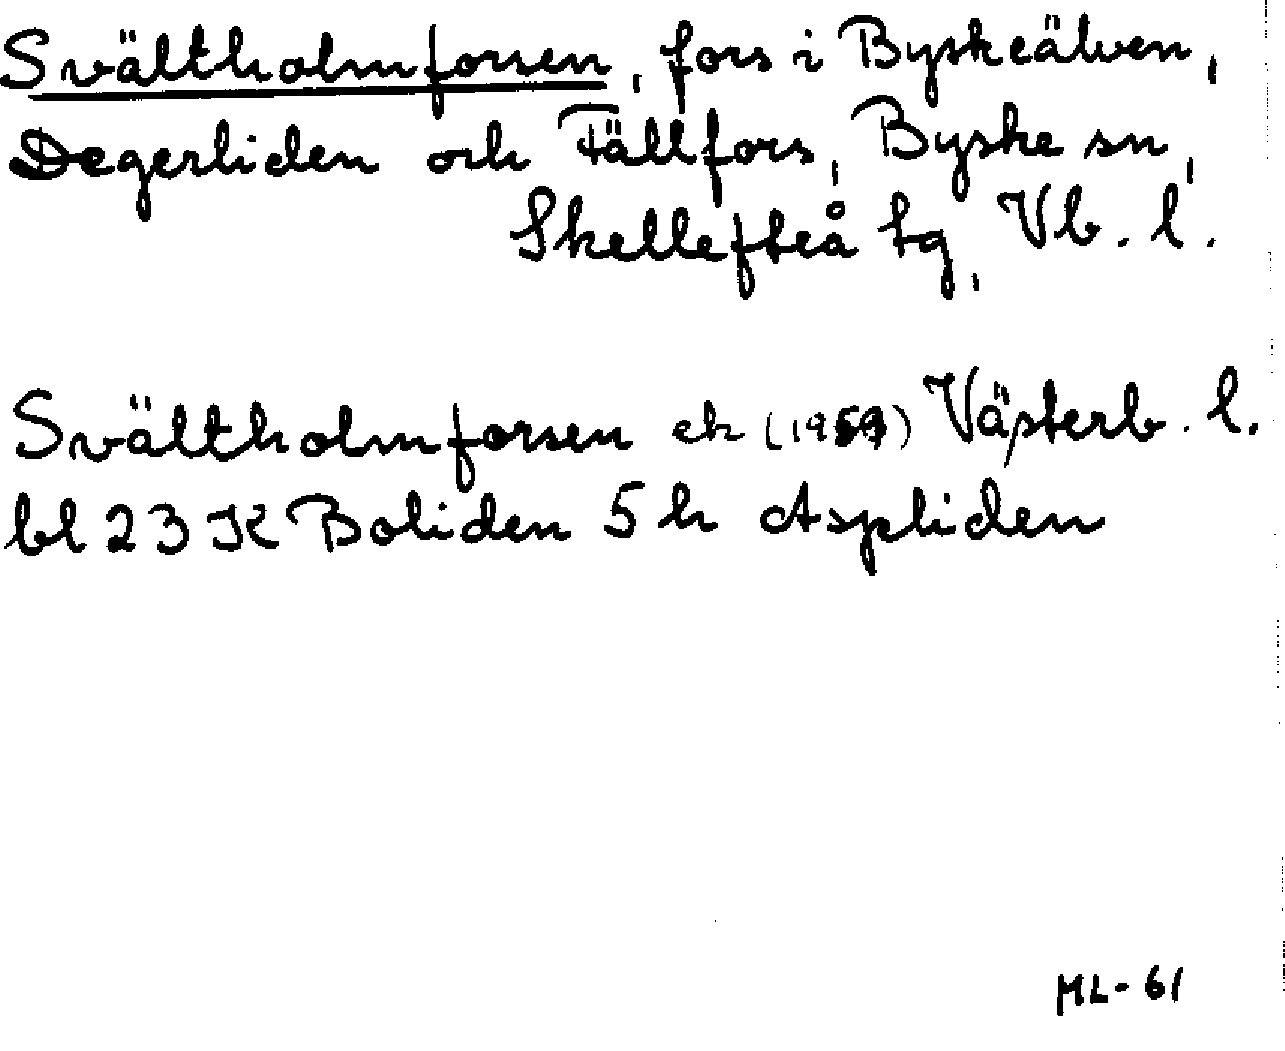 Svältholmforsen, fors i Byskeälven,
Degerliden och Fällfors, Byske sn,
Skellefteå tg, Vb. l.
Svältholmforsen ek (1959) Västerb. l.
bl 23 K Boliden 5 h Aspliden
ML-61